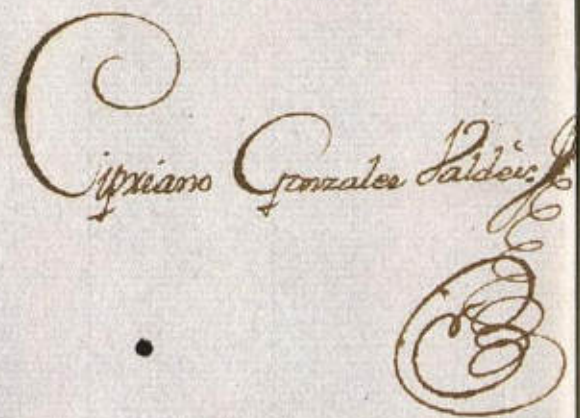 Cipriano Gonzalez Valdés.